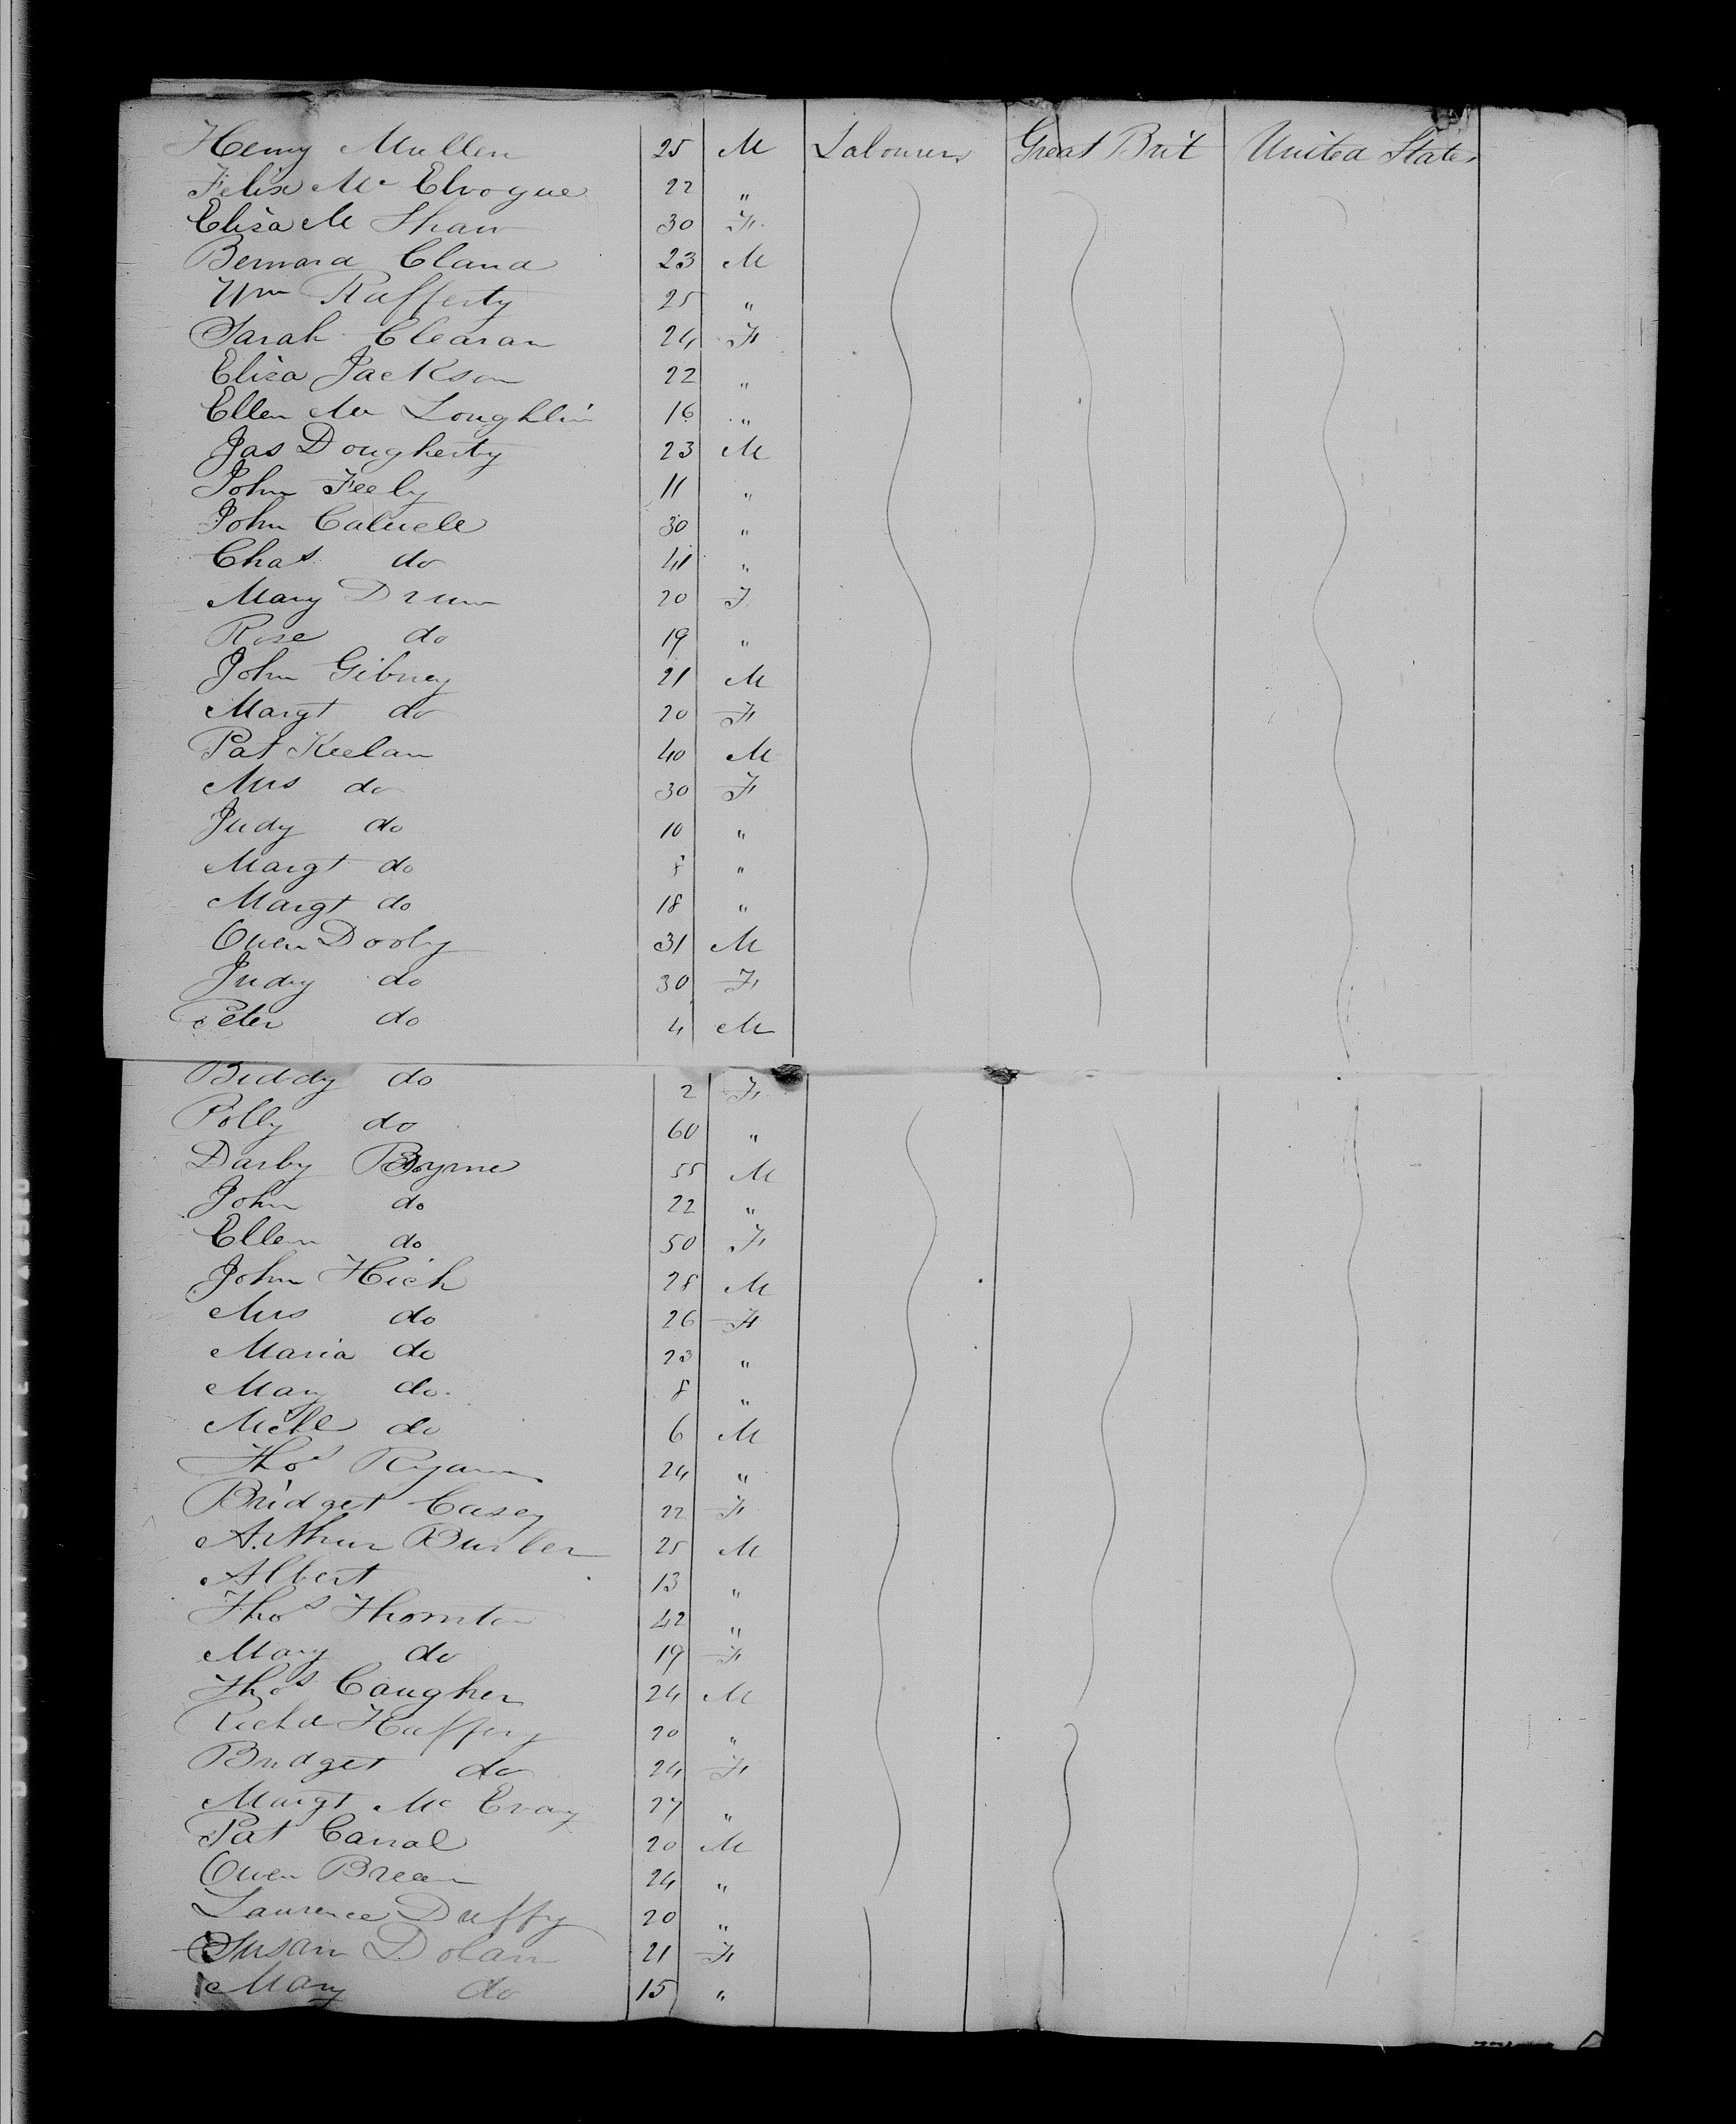 Henry Mullen 25 M Labourers Great Brit United States
Felix Mc Elvogue 22 "
Eliza M Shaw 30 F
Bernard Cland 23 M
Wm Rafferty 25 "
Sarah Clearan 24 F
Eliza Jackson 22 "
Ellen Mc Loughlin 16 "
Jas Dougherty 23 M
John Feely 11 "
John 30 "
Chas do 41 "
Mary Drum 20 F
Rose do 19 "
John Gibney 21 M
Margt do 20 F
Pat Keelan 40 M
Mrs do 30 F
Judy do 10 "
Margt do 8 "
Margt do 18 "
Owen Dooly 31 M
Judy do 30 F
Peter do 4 M
Biddy do 2 F
Polly do 60 "
Darby Byrne 55 M
John do 22 "
Ellen do 50 F
John Hick 28 M
Mrs do 26 F
Maria do 23 "
Mary do 8 "
Michl do 6 M
Thos Ryan 24 "
Bridget Casey 22 F
Arthur Butler 25 M
Albert 13 "
Thos Thornton 42 "
Mary do 19 F
Thos Caugher 24 M
Richd Haffery 20 "
Bridget do 24 F
Margt Mc Evoy 27 "
Pat Carral 20 M
Owen Breen 24 "
Laurence Duffy 20 "
Susan Dolan 21 F
Mary do 15 "